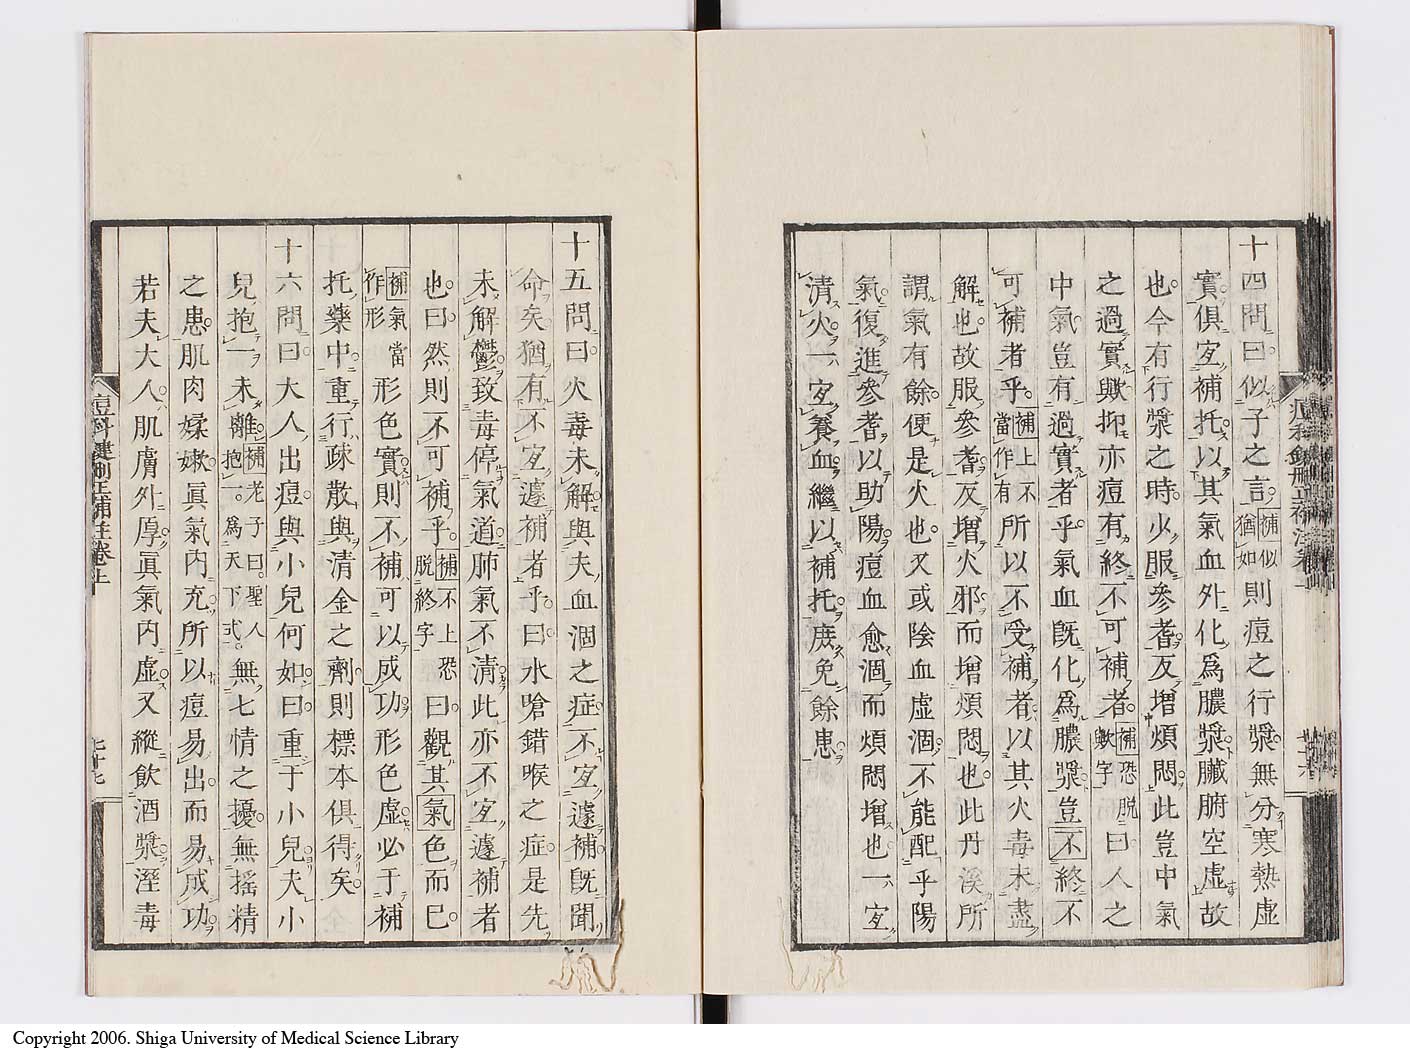 十四問曰似子之言補似猶如則痘之行漿無分寒熱虛
實俱宐補托以其氣血外化爲膿漿臟腑空虛故
也今有行漿之時火服參耆反增煩悶此豈中氣
之過實歟抑亦痘有終不可補者補恐脫歟字曰人之
中氣豈有過實者乎氣血旣化爲膿漿豈不終不
可補者乎補上不當作有所以不受補者以其火毒未盡
解也故服參耆反增火邪而增煩悶也此丹溪所
謂氣有餘便是火也又或陰血虛涸不能配乎陽
氣復進參耆以助陽痘血愈涸而煩悶增也一宐
清火一宐養血繼以補托庶免餘患
十五問曰火毒未解與夫血涸之症不宐遽補旣聞
命矣猶有不宐遽補者乎曰水嗆錯喉之症是先
未解鬱致毒停氣道肺氣不清此亦不宐遽補者
也曰然則不可補乎補不上恐脫終字曰觀其氣色而已
補氣當作形形色實則不補可以成功形色虛必于補
托藥中重行疎散與清金之劑則標本俱得矣
十六問曰大人出痘與小兒何如曰重于小兒夫小
兒抱一未離補老子曰聖人抱一爲天下式無七情之擾無搖精
之患肌肉媃嫩眞氣内充所以痘易出而易成功
若夫大人肌膚外厚眞氣内虛又縱飲酒漿溼毒
痘科鍵刪正補註卷上
Copyright 2006. Shiga University of Medical Science Library